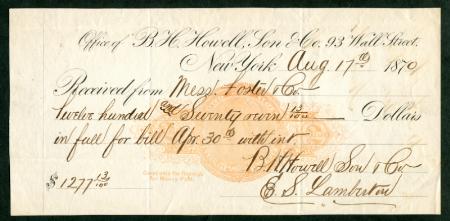 Office of B. H. Howell, Son & Co. 93 Wall Street.
New York Aug. 17th 1870
Received from Mess. Foster & Co.
Twelve hundred and Seventy seven 13/100 Dollars
in full for bill Apr. 30th with int
B. H. Howell Son & Co
$1277 13/100
E. S. Lamberton